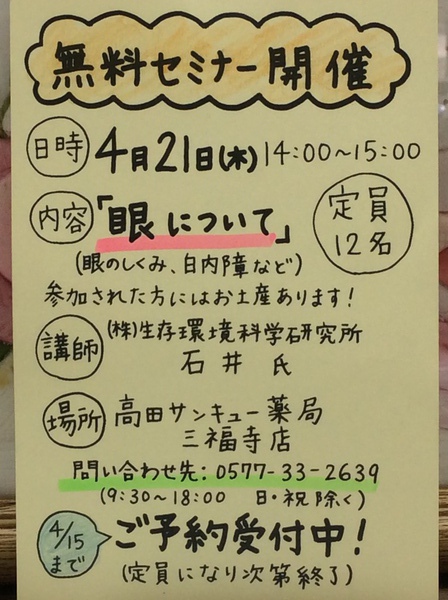 無料セミナー開催
日時 4月21日(木) 14:00~15:00
内容 「眼について」
(眼のしくみ、白内障など)
定員
12名
参加された方にはお土産あります!
講師 (株)生存環境科学研究所
石井 氏
場所 高田サンキュー薬局
三福寺店
問い合わせ先:0577-33-2639
(9:30~18:00 日・祝除く)
4/15
まで
ご予約受付中!
(定員になり次第終了)